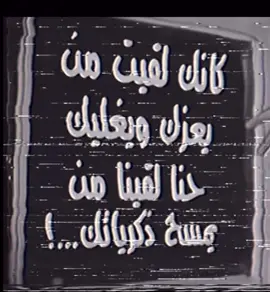 كانك لقيت من
يعزك ويغليك
حنا لقينا من
يمسح ذكرياتك....!